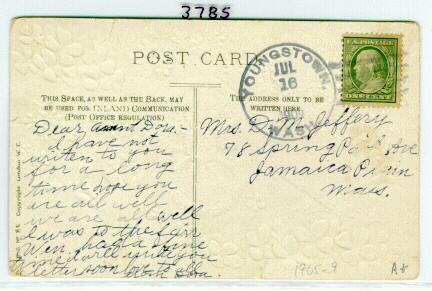 3785
POST CARD
THIS SPACE, AS WELL AS THE BACK, MAY
BE USED FOR INLAND COMMUNICATION
(POST OFFICE REGULATION)
THE ADDRESS ONLY TO BE
WRITTEN HERE.
YOUNGSTOWN
JUL
16
WASH
U.S. POSTAGE
Dear Aunt Dora:-
I have not
written to you
for a long
time hope you
are all well
we are all well
I was to the
had a
time will you
soon love to all
Mrs. D. M. Jeffery
78 Spring Park Ave
Jamaica Plain
Mass.
Copyright London W.C.
1905-9
A8